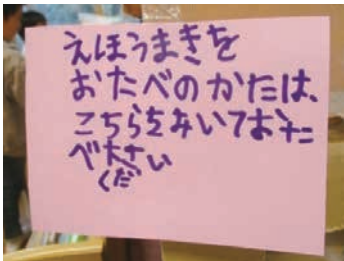 えほうまきを
おたべのかたは、
こちらをみいておた
べさい
くだ